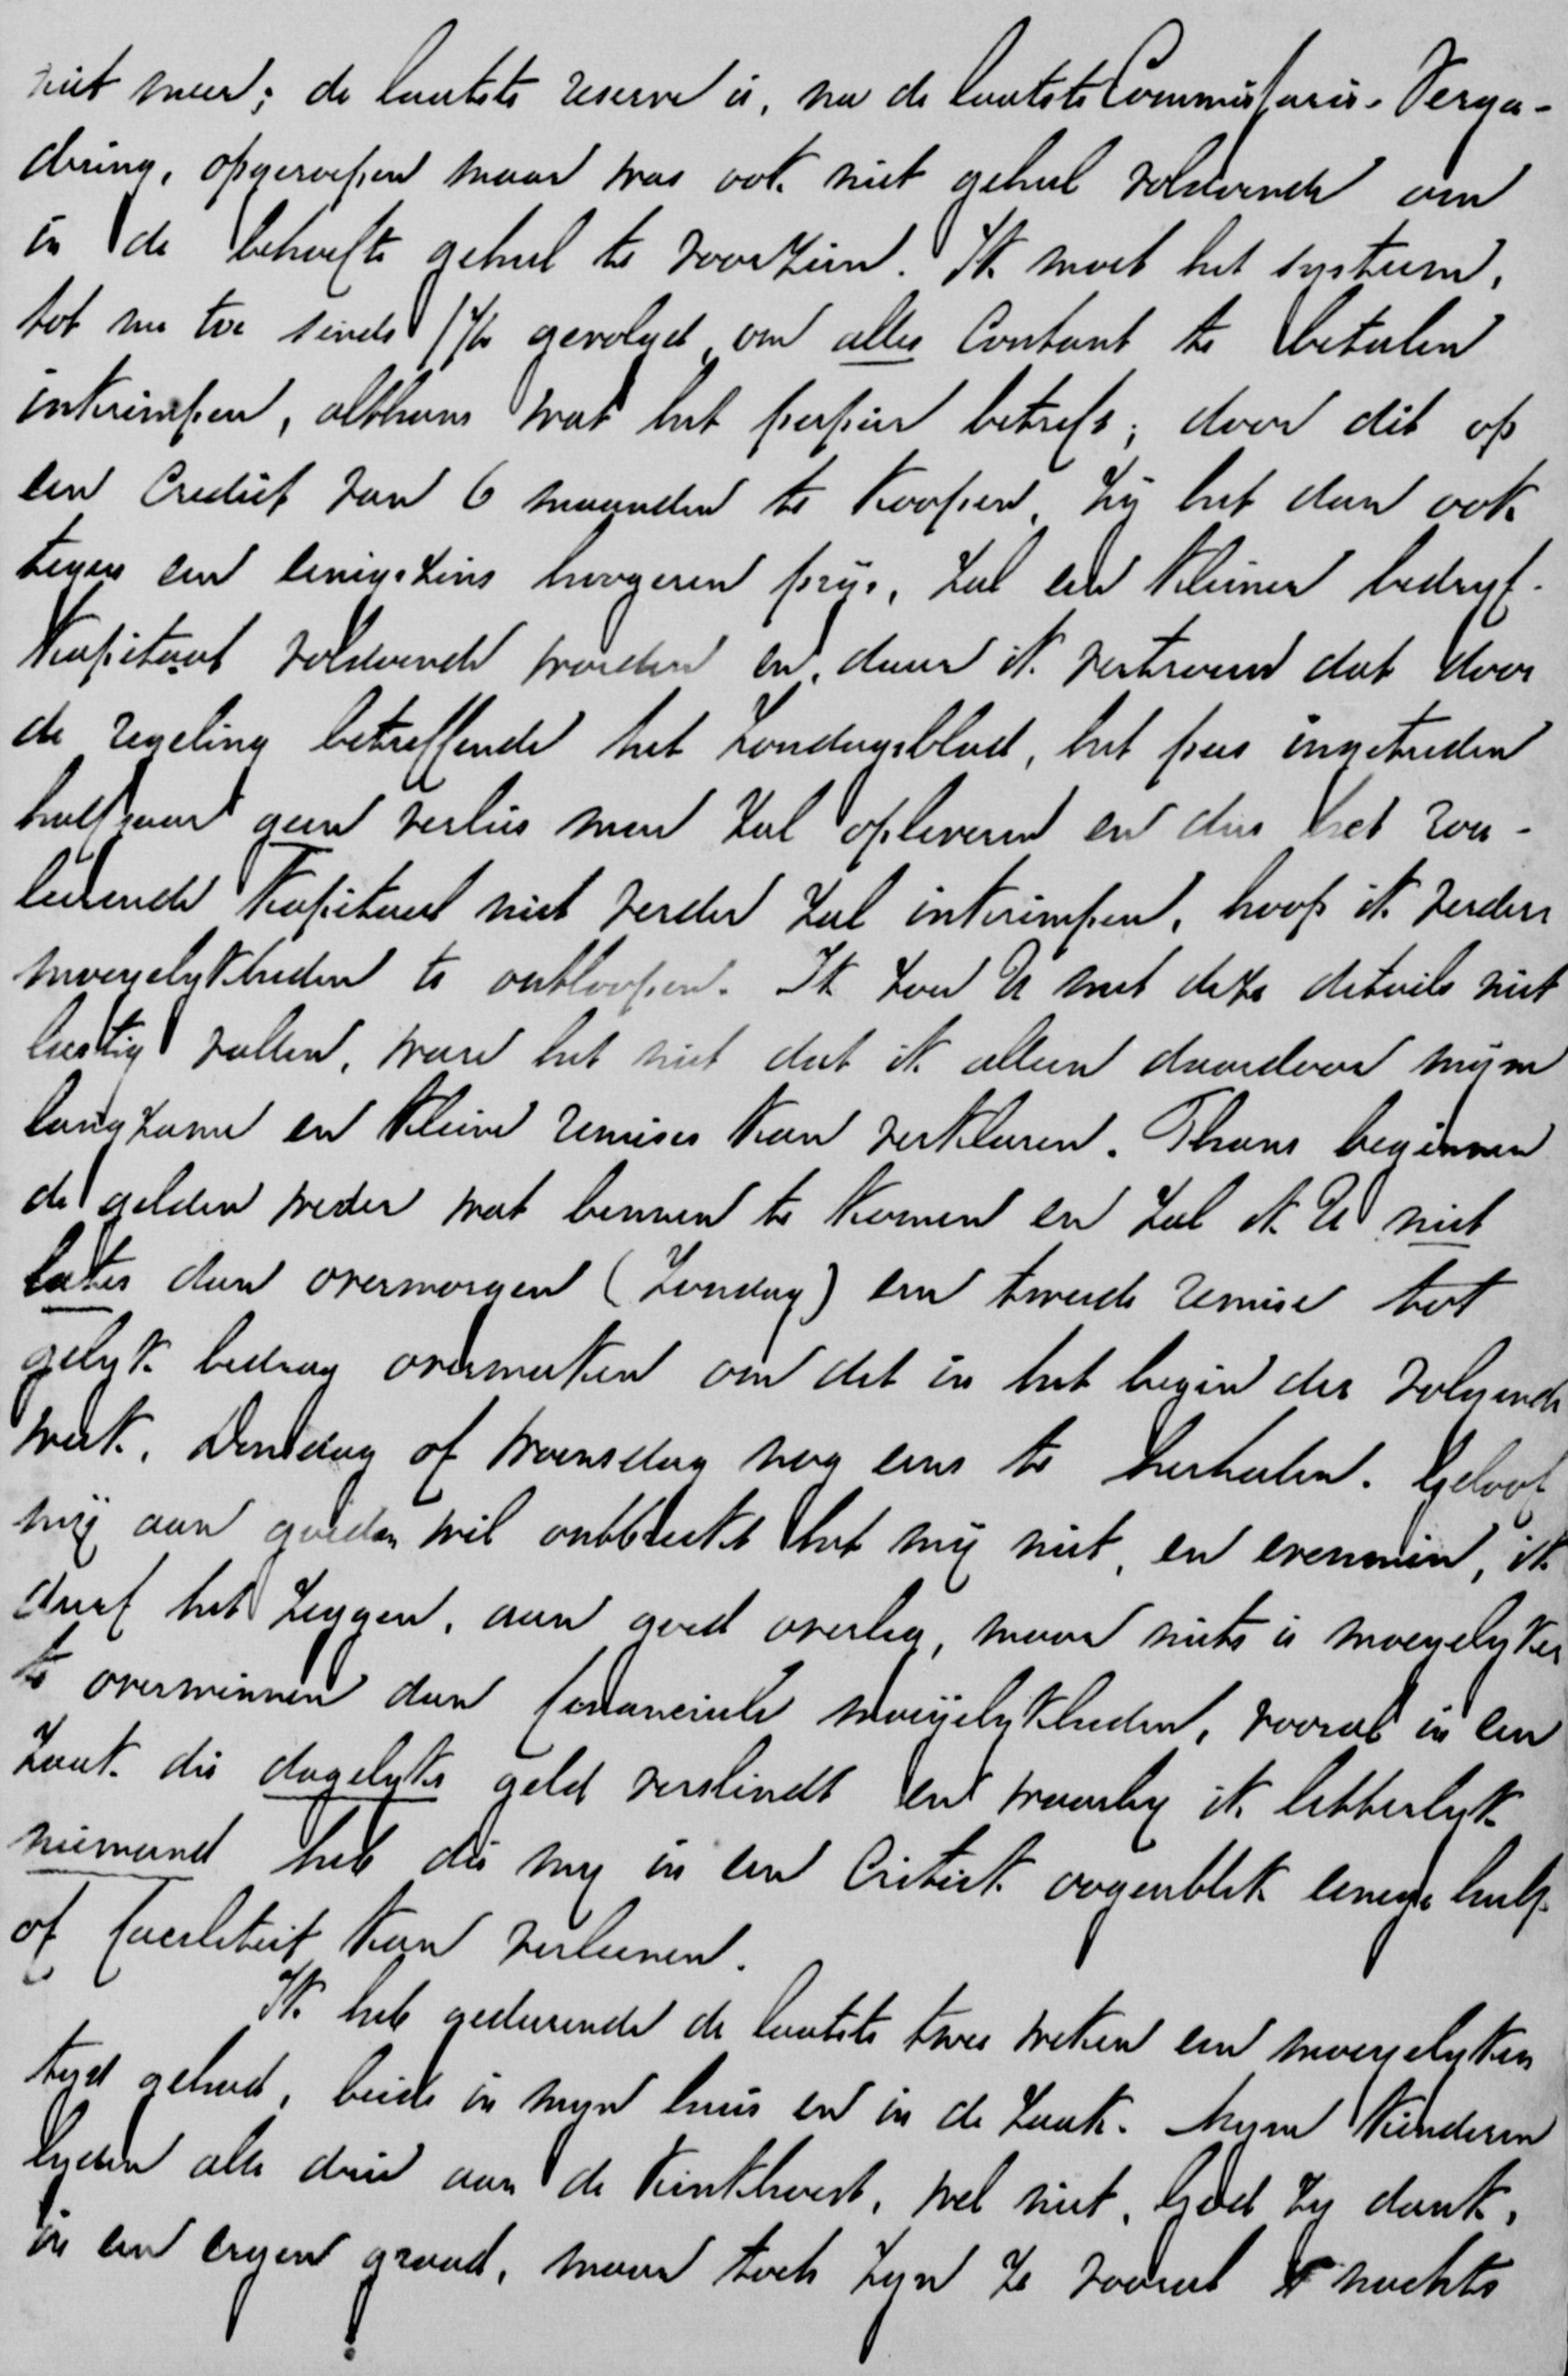 niet meer; de laatste reserve is, na de laatste Commissaris-Verga-
dering, opgeroepen maar was ook niet geheel voldoende om
in de behoefte geheel te voorzien. Ik moet het systeem,
tot nu toe sinds gevolgd, om alles Contant te betalen
inkrimpen, althans wat het papier betreft; door dit op
een Crediet van 6 maanden te koopen, zij het dan ook
tegen een eenigszins hoogeren prijs, zal een kleiner bedryf-
kapitaal voldoende worden en, daar ik vertrouw dat door
de regeling betreffende het Zondagsblad, het pas ingetreden
halfjaar geen verlies meer zal opleveren en dus het rou-
leerende kapitaal niet verder zal inkrimpen, hoop ik verdere
moeyelykheden te ontloopen. Ik zou U met deze details niet
lastig vallen, ware het niet dat ik alleen daardoor mijne
langzame en kleine remises kan verklaren. Thans beginnen
de gelden weder wat binnen te komen en zal ik U niet
later dan overmorgen (Zondag) een tweede remise tot
gelyk bedrag overmaken om dit in het begin der volgende
week, Dinsdag of Woensdag nog eens te herhalen. Geloof
mij aan goeden wil ontbreekt het mij niet, en evenmin, ik
durf het zeggen, aan goed overleg, maar niets is moeyelyker
te overwinnen dan financieele moeijelykheden, vooral in een
zaak die dagelyks geld verslindt en waarby ik letterlyk
niemand heb die my in een Critiek oogenblik eenige hulp
of faciliteit kan verleenen.
Ik heb gedurende de laatste twee weken een moeyelyken
tyd gehad, beide in myn huis en in de zaak. Myne kinderen
lyden alle drie aan de kinkhoest, wel niet, God zy dank,
in een ergen graad, maar toch zyn ze vooral 's nachts